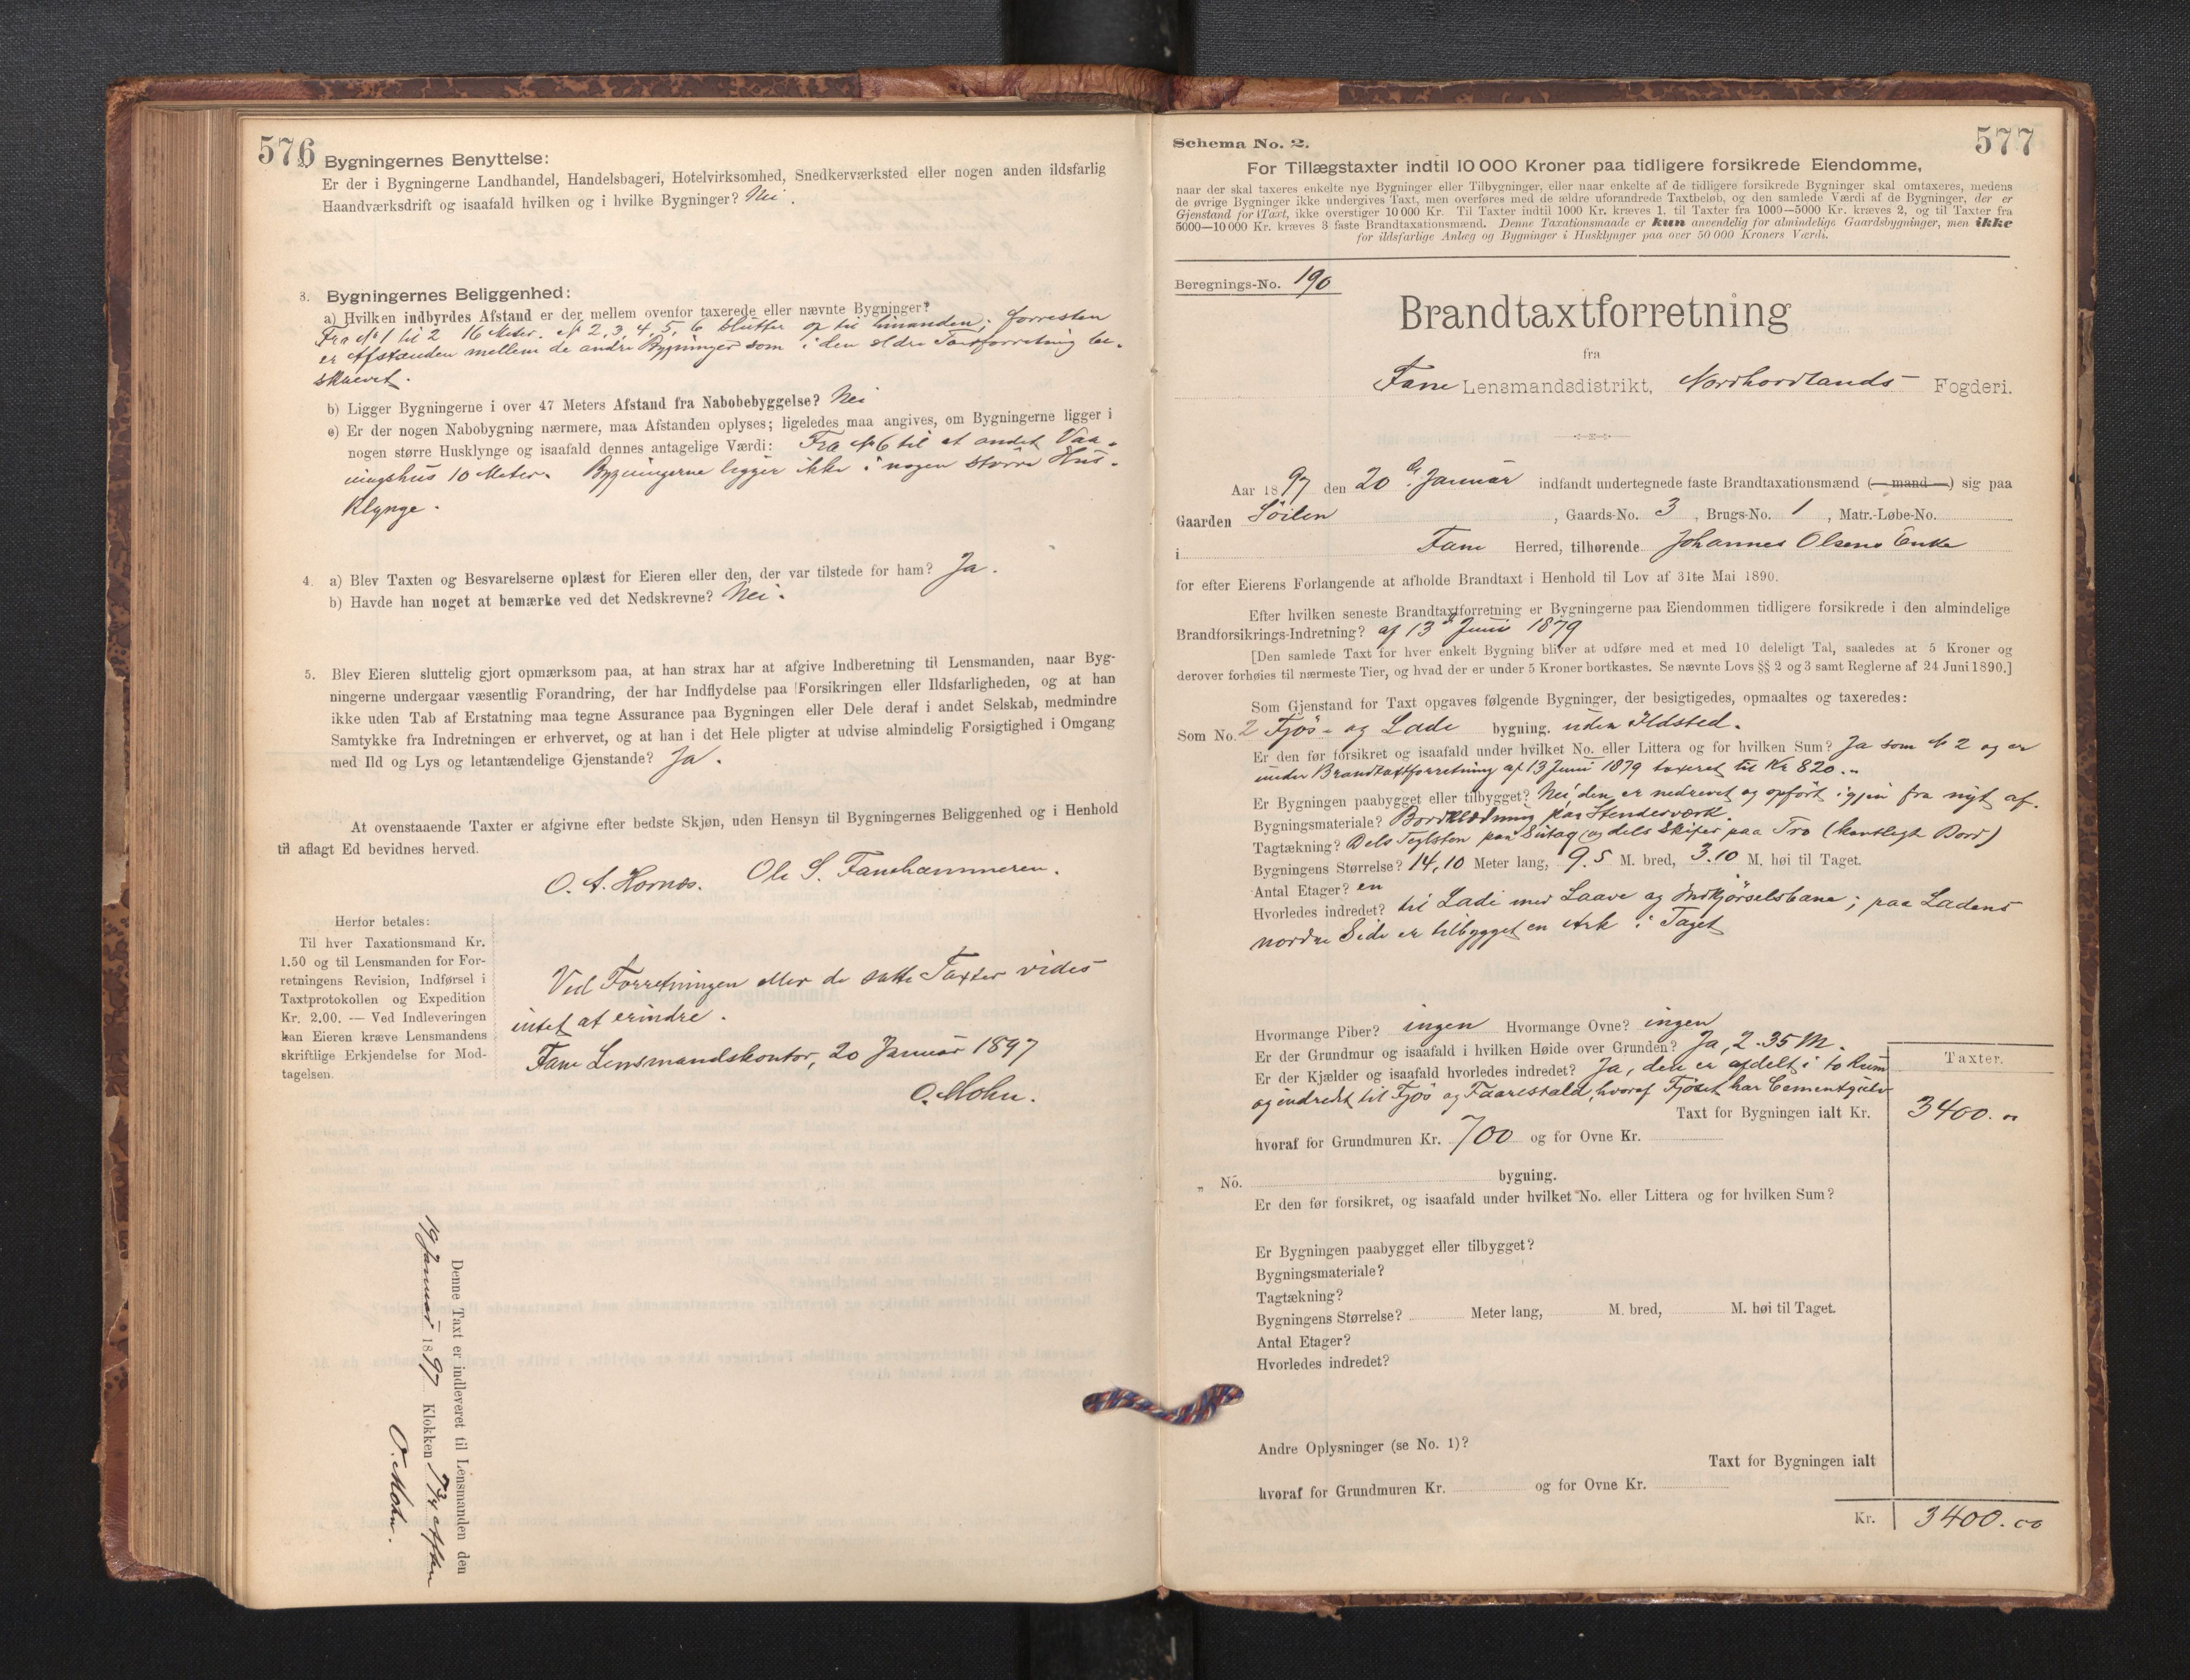 576
Bygningernes Benyttelse:
Er der i Bygningerne Landhandel, Handelsbageri, Hotelvirksomhed, Snedkerværksted eller nogen anden ildsfarlig
Haandværksdrift og isaafald hvilken og i hvilke Bygninger? Nei.
3. Bygningernes Beliggenhed:
a) Hvilken indbyrdes Afstand er der mellem ovenfor taxerede eller nævnte Bygninger?
Fra No 1 til 2 16 Meter. No 2, 3, 4, 5, 6 slutter op til hinanden; forresten
er Afstanden mellem de andre Bygninger som i den ældre Taxtforretning be-
skrevet.
b) Ligger Bygningerne i over 47 Meters Afstand fra Nabobebyggelse? Nei
c) Er der nogen Nabobygning nærmere, maa Afstanden oplyses; ligeledes maa angives, om Bygningerne ligger i
nogen større Husklynge og isaafald dennes antagelige Værdi: Fra No 6 til et andet Vaa-
ningshus 10 Meter. Bygningerne ligger ikke i nogen større Hus-
klynge.
4. a) Blev Taxten og Besvarelserne oplæst for Eieren eller den, der var tilstede for ham? Ja.
b) Havde han noget at bemærke ved det Nedskrevne? Nei.
5. Blev Eieren sluttelig gjort opmærksom paa, at han strax har at afgive Indberetning til Lensmanden, naar Byg-
ningerne undergaar væsentlig Forandring, der har Indflydelse paa Forsikringen eller Ildsfarligheden, og at han
ikke uden Tab af Erstatning maa tegne Assurance paa Bygningen eller Dele deraf i andet Selskab, medmindre
Samtykke fra Indretningen er erhvervet, og at han i det Hele pligter at udvise almindelig Forsigtighed i Omgang
med Ild og Lys og letantændelige Gjenstande? Ja.
At ovenstaaende Taxter er afgivne efter bedste Skjøn, uden Hensyn til Bygningernes Beliggenhed og i Henhold
til aflagt Ed bevidnes herved.
O. A. Hornæs. Ole S. Fanehammeren.
Herfor betales:
Til hver Taxationsmand Kr.
1.50 og til Lensmanden for For-
retningens Revision, Indførsel i
Taxtprotokollen og Expedition
Kr. 2.00. — Ved Indleveringen
kan Eieren kræve Lensmandens
skriftlige Erkjendelse for Mod-
tagelsen.
Ved Forretningen eller de satte Taxter vides
intet at erindre.
Fane Lensmandskontor, 20 Januar 1897
O. Mohn.
Denne Taxt er indleveret til Lensmanden den
19 Januar 1897 Klokken 7¾ Aften
O. Mohn.
577
Schema No. 2.
For Tillægstaxter indtil 10 000 Kroner paa tidligere forsikrede Eiendomme,
naar der skal taxeres enkelte nye Bygninger eller Tilbygninger, eller naar enkelte af de tidligere forsikrede Bygninger skal omtaxeres, medens
de øvrige Bygninger ikke undergives Taxt, men overføres med de ældre uforandrede Taxtbeløb, og den samlede Værdi af de Bygninger, der er
Gjenstand for Taxt, ikke overstiger 10 000 Kr. Til Taxter indtil 1000 Kr. kræves 1, til Taxter fra 1000—5000 Kr. kræves 2, og til Taxter fra
5000—10 000 Kr. kræves 3 faste Brandtaxationsmænd. Denne Taxationsmaade er kun anvendelig for almindelige Gaardsbygninger, men ikke
for ildsfarlige Anlæg og Bygninger i Husklynger paa over 50 000 Kroners Værdi.
Beregnings-No. 190
Brandtaxtforretning
fra
Fane Lensmandsdistrikt, Nordhordlands Fogderi.
Aar 1897 den 20 de Januar indfandt undertegnede faste Brandtaxationsmænd (mand) sig paa
Gaarden Söilen, Gaards-No. 3, Brugs-No. 1, Matr.-Løbe-No.
i Fane Herred, tilhørende Johannes Olsens Enke
for efter Eierens Forlangende at afholde Brandtaxt i Henhold til Lov af 31te Mai 1890.
Efter hvilken seneste Brandtaxtforretning er Bygningerne paa Eiendommen tidligere forsikrede i den almindelige
Brandforsikrings-Indretning? af 13 d Juni 1879
[Den samlede Taxt for hver enkelt Bygning bliver at udføre med et med 10 deleligt Tal, saaledes at 5 Kroner og
derover forhøies til nærmeste Tier, og hvad der er under 5 Kroner bortkastes. Se nævnte Lovs §§ 2 og 3 samt Reglerne af 24 Juni 1890.]
Som Gjenstand for Taxt opgaves følgende Bygninger, der besigtigedes, opmaaltes og taxeredes:
Som No. 2 Fjös- og Lade bygning. uden Ildsted.
Er den før forsikret og isaafald under hvilket No. eller Littera og for hvilken Sum? Ja som No 2 og er
under Brandtaxtforretning af 13 Juni 1879 taxeret til Kr 820.
Er Bygningen paabygget eller tilbygget? Nei, den er nedrevet og opfört igjen fra nyt af.
Bygningsmateriale? Bordklædning paa Stenderværk.
Tagtækning? Dels Teglsten paa Sutag og dels Skifer paa Tro (kantlagt Bord)
Bygningens Størrelse? 14,10 Meter lang, 9.5 M. bred, 3.10 M. høi til Taget.
Antal Etager? en
Hvorledes indredet? til Lade med Laave og Indkjörselsbane; paa Ladens
nordre Side er tilbygget en Ark i Taget
Hvormange Piber? ingen Hvormange Ovne? ingen
Er der Grundmur og isaafald i hvilken Høide over Grunden? Ja, 2.35 M.
Er der Kjælder og isaafald hvorledes indredet? Ja, den er afdelt i to Rum
og indredet til Fjös og Faarestald, hvoraf Fjöset har Cementgulv
Taxter.
Taxt for Bygningen ialt Kr. 3400.
hvoraf for Grundmuren Kr. 700 og for Ovne Kr.
" No. bygning.
Er den før forsikret, og isaafald under hvilket No. eller Littera og for hvilken Sum?
Er Bygningen paabygget eller tilbygget?
Bygningsmateriale?
Tagtækning?
Bygningens Størrelse? Meter lang, M. bred, M. høi til Taget.
Antal Etager?
Hvorledes indredet?
Andre Oplysninger (se No. 1)?
Taxt for Bygningen ialt
hvoraf for Grundmuren Kr. og for Ovne Kr.
Kr. 3400.00